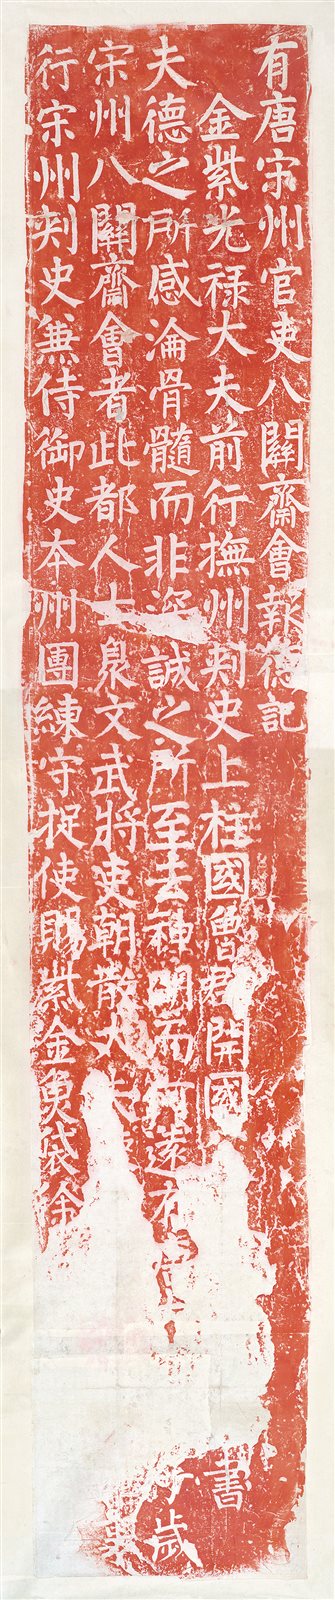 有唐宋州官吏八關齋會報德記
金紫光祿大夫前行撫州刺史上柱國魯郡開國書
夫德之所感淪骨髓而非深誠之所至去神明而何遠有歲
宋州八關齋會者此都人士衆文武將吏朝散大夫
行宋州刺史兼侍御史本州團練守捉使賜紫金魚袋徐